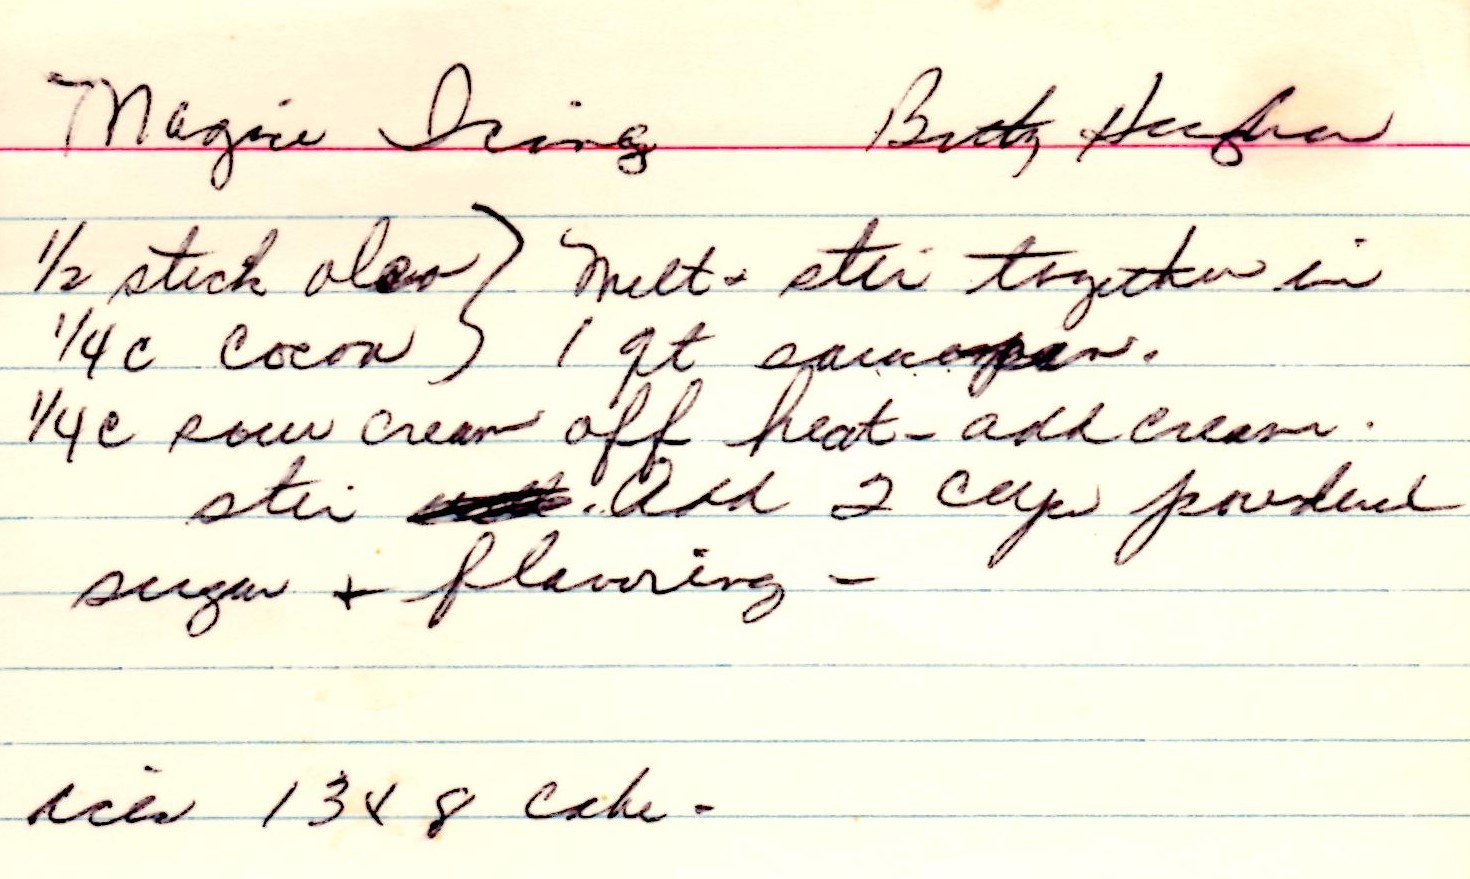 Magic Icing Betty Hughes
1/2 stick oleo } Melt + stir together in
1/4 c cocoa } 1 qt saucepan.
1/4 c sour cream off heat - add cream.
stir . Add 2 cups powdered
sugar + flavoring -
ices 13 x 8 cake -